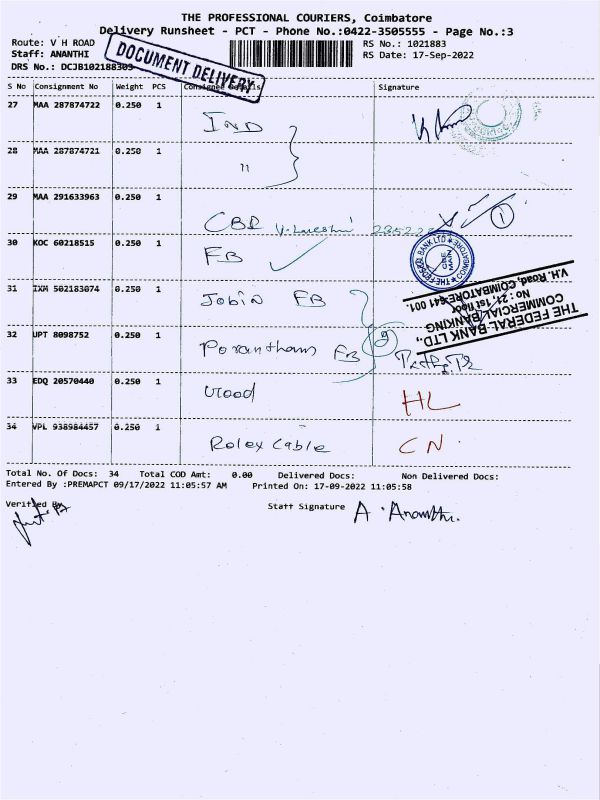 THE PROFESSIONAL COURIERS, Coimbatore
Delivery Runsheet - PCT - Phone No.:0422-3505555 - Page No.:3
Route: V H ROAD RS No.: 1021883
Staff: ANANTHI RS Date: 17-Sep-2022
DRS No.: DCJB102188303
DOCUMENT DELIVERY
S No Consignment No Weight PCS Consignee Details Signature
27 MAA 287874722 0.250 1 IND
28 MAA 287874721 0.250 1 "
29 MAA 291633963 0.250 1 CBR
30 KOC 60218515 0.250 1 FB
THE FEDERAL BANK LTD COIMBATORE
31 IXM 502183074 0.250 1 Jobin FB
THE FEDERAL BANK LTD.,
COMMERCIAL BANKING
No : 21, 1st floor
V.H. Road, COIMBATORE-641 001.
32 UPT 8098752 0.250 1 FB
33 EDQ 20570440 0.250 1 Wood HL
34 VPL 938984457 0.250 1 Rolex Cable CN
Total No. Of Docs: 34 Total COD Amt: 0.00 Delivered Docs: Non Delivered Docs:
Entered By :PREMAPCT 09/17/2022 11:05:57 AM Printed On: 17-09-2022 11:05:58
Verified By Staff Signature A. Ananthi.